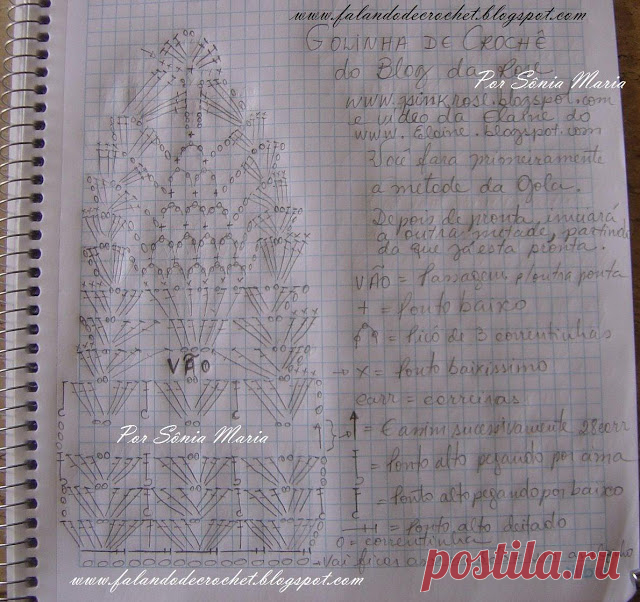 www.falandodecrochet.blogspot.com
GOLINHA DE CROCHÊ
do Blog da Rose
Por Sônia Maria
www.psinkrose.blogspot.com
e video da Elaine do
www.Elaine.blogspot.com
Você fara primeiramente
a metade da Gola.
Depois de pronta, iniciará
a outra metade, partindo
da que já esta pronta.
VÃO = Passagem p/outra ponta
+ = Ponto baixo
= Picô de 3 correntinhas
→ x = Ponto baixissimo
carr = carreiras
= E assim sucessivamente 28 carr
= Ponto alto pegando por cima
= Ponto alto pegando por baixo
= Ponto alto deitado
0 = correntinha
→ Vai ficar
VÃO
Por Sônia Maria
www.falandodecrochet.blogspot.com
postila.ru